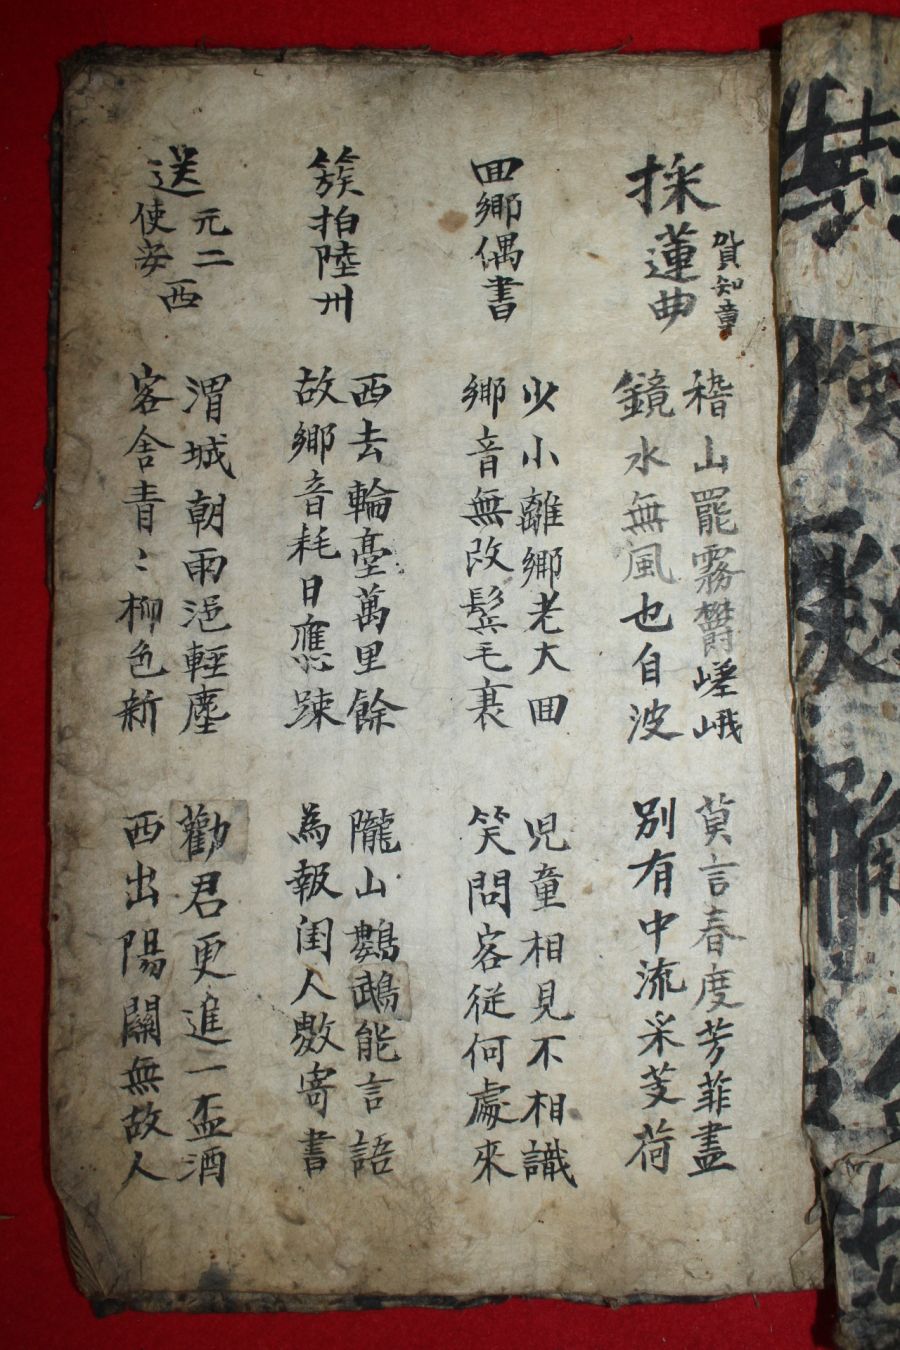 採蓮曲
賀知章
稽山罷霧欝嵯峨
鏡水無風也自波
莫言春度芳菲盡
別有中流采芰荷
回鄉偶書
少小離鄉老大回
鄉音無改鬂毛衰
児童相見不相識
笑問客従何處來
簇拍陸州
西去輪臺萬里餘
故鄉音耗日應踈
隴山鸚鵡能言語
為報閨人數寄書
送元二使安西
渭城朝雨浥輕塵
客舍青〻柳色新
勸君更進一盃酒
西出陽關無故人